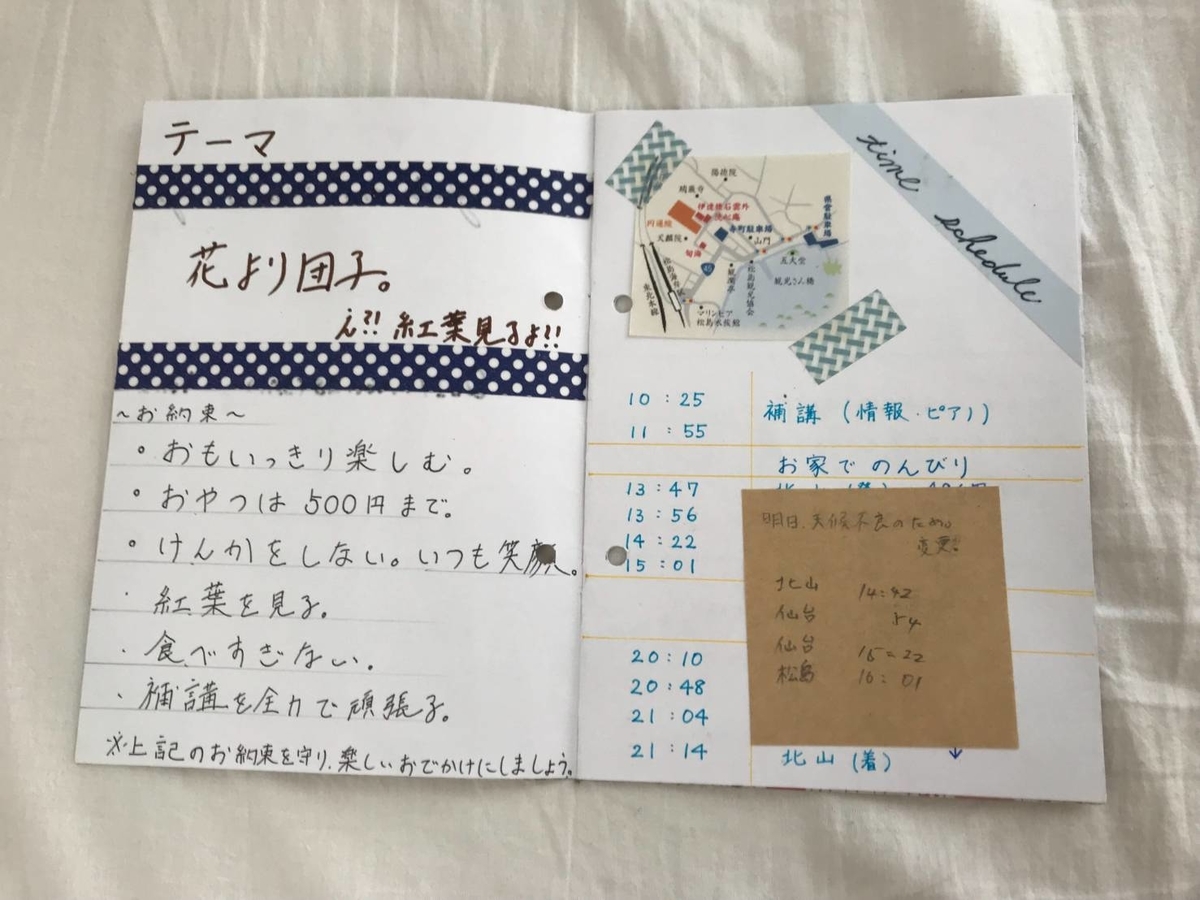 テーマ
花より団子。
え?! 紅葉見るよ?!
〜お約束〜
・おもいっきり楽しむ。
・おやつは500円まで。
・けんかをしない。いつも笑顔。
・紅葉を見る。
・食べすぎない。
・補講を全力で頑張る。
※上記のお約束を守り、楽しいおでかけにしましょう。
time schedule
陽徳院
瑞巌寺
伊達政宗
円通院
天麟院
寺町駐車場
県営駐車場
山門
五大堂
45
観瀾亭
松島観光協会
観光さん橋
松島海岸駅
東北本線
マリンピア
松島水族館
10:25 補講(情報・ピアノ)
11:55
お家でのんびり
13:47
13:56
14:22
15:01
明日、天候不良のため。
変更!!
北山 14:42
仙台 54
仙台 15:22
松島 16:01
20:10
20:48
21:04
21:14 北山(着)